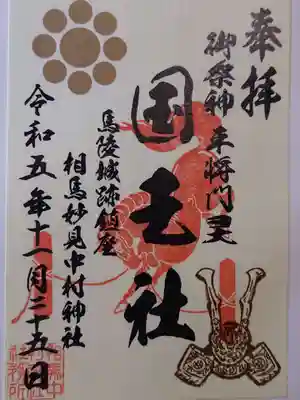 奉拝
御祭神平将門霊
国王社
馬陵城跡鎮座
相馬妙見中村神社
令和五年十一月二十五日